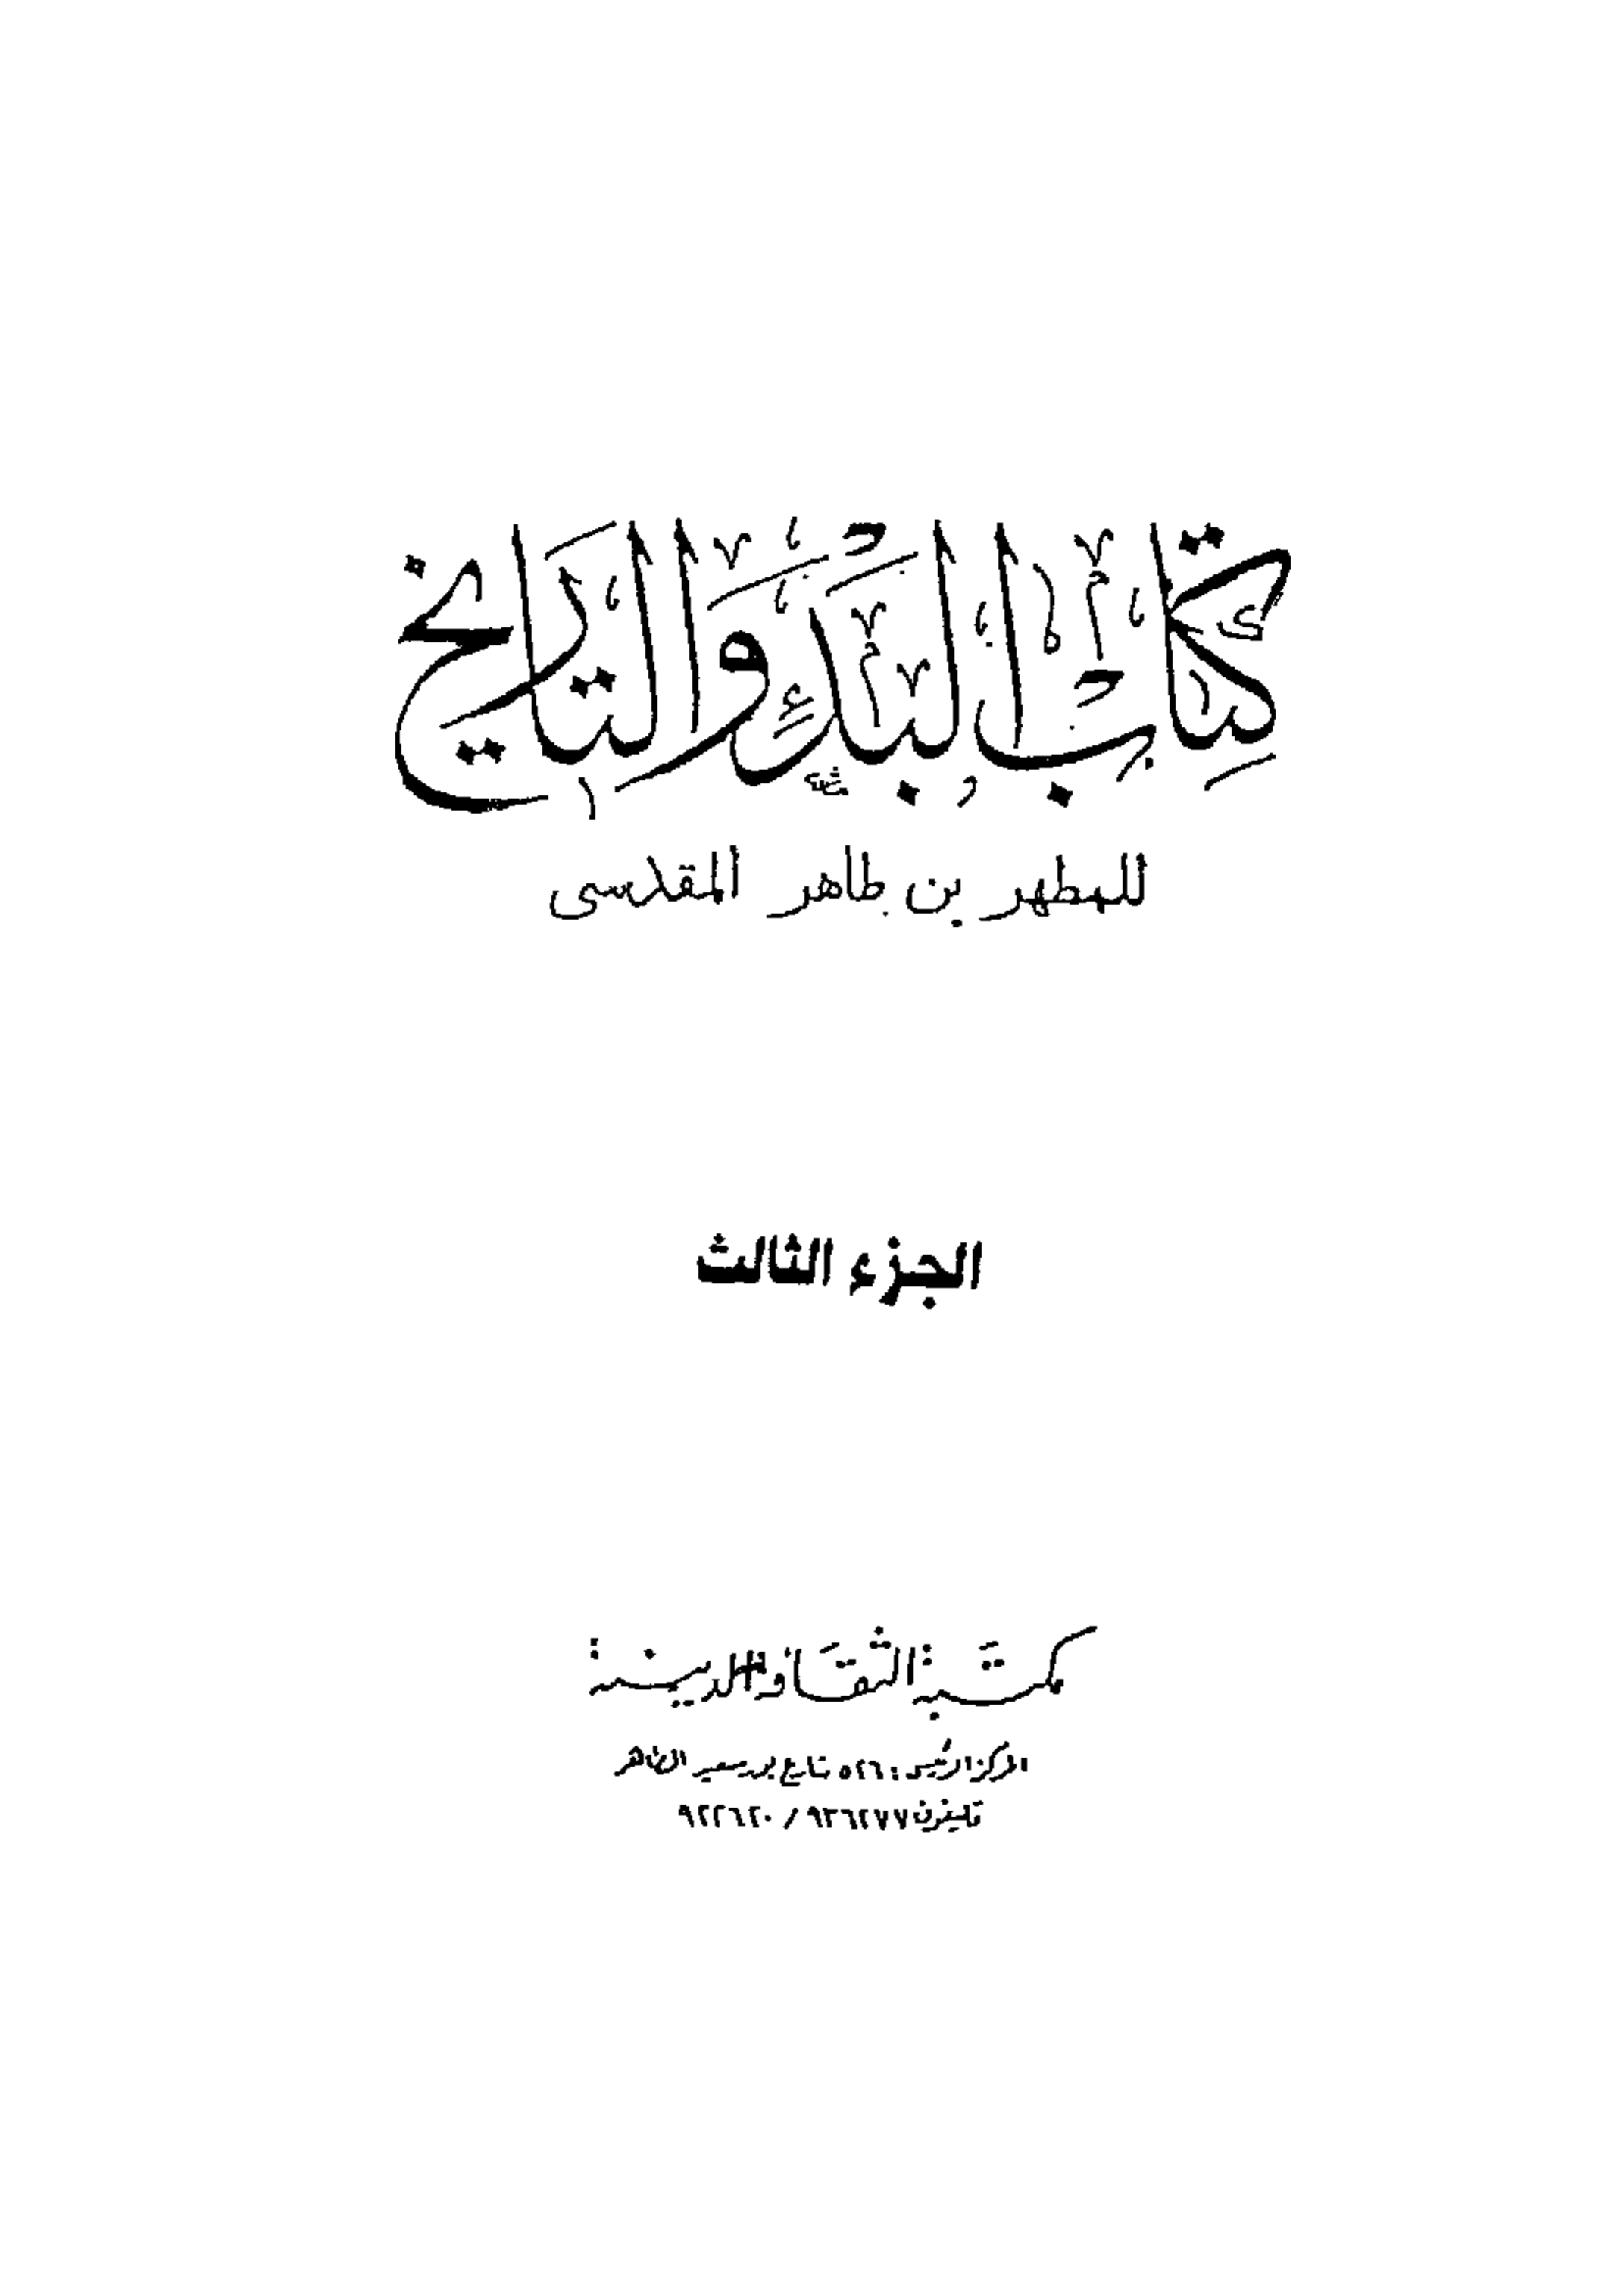 كتاب البدء والتاريخ
للمطهر بن طاهر المقدسى
الجزء الثالث
مكتبة الثقافة الدينية
المركز الرئيسى : ٥٢٦ شارع بورسعيد الظاهر
تليفون ٩٣٦٢٧٧ / ٩٢٢٦٢٠